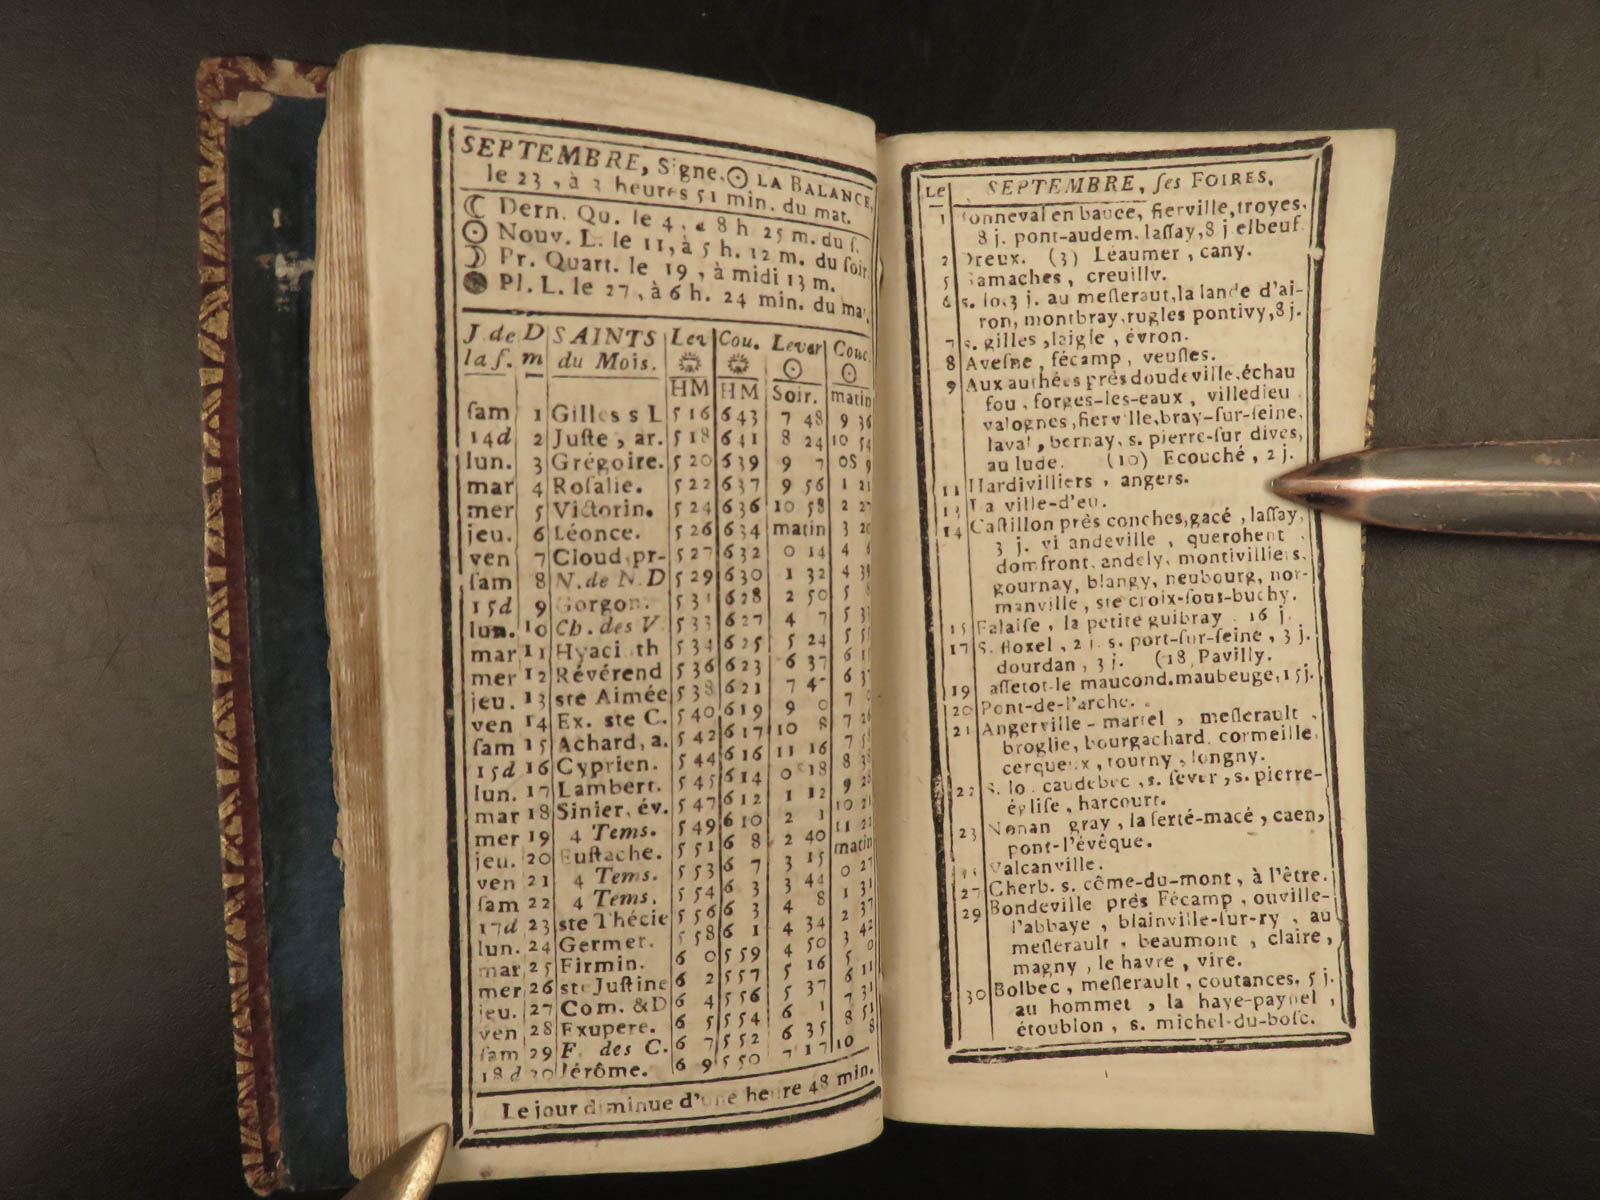 SEPTEMBRE, Signe. ☉ LA BALANCE,
le 23, à 3 heures 51 min. du mat.
☾ Dern. Qu. le 4, à 8 h 25 m. du ſ.
☉ Nouv. L. le 11, à 5 h. 12 m. du ſoir.
☽ Pr. Quart. le 19, à midi 13 m.
● Pl. L. le 27, à 6 h. 24 min. du mat.
J. de D SAINTS Lev Cou. Lever Couc.
la ſ. m du Mois. ☉ ☉
HM HM Soir. matin
ſam 1 Gilles s L 5 16 6 43 7 48 9 36
14d 2 Juſte, ar. 5 18 6 41 8 24 10 54
lun. 3 Grégoire. 5 20 6 39 9 7 0S 9
mar 4 Roſalie. 5 22 6 37 9 56 1 21
mer 5 Victorin. 5 24 6 36 10 58 2 27
jeu. 6 Léonce. 5 26 6 34 matin 3 20
ven 7 Cloud, pr- 5 27 6 32 0 14 4 6
ſam 8 N. de N. D 5 29 6 30 1 32 4 39
15d 9 Gorgon. 5 31 6 28 2 50 5 8
lun. 10 Ch. des V. 5 33 6 27 4 7 5 33
mar 11 Hyacinth 5 34 6 25 5 24 5 55
mer 12 Révérend 5 36 6 23 6 37 6 15
jeu. 13 ste Aimée 5 38 6 21 7 4 6 37
ven 14 Ex. ste C. 5 40 6 19 9 0 7
ſam 15 Achard, a. 5 42 6 17 10 8 7 26
15d 16 Cyprien. 5 44 6 16 11 16 7 55
lun. 17 Lambert. 5 45 6 14 0 18 8 38
mar 18 Sinier, év. 5 47 6 12 1 12 9 28
mer 19 4 Tems. 5 49 6 10 2 1 10 21
jeu. 20 Euſtache. 5 51 6 8 2 40 11 22
ven 21 4 Tems. 5 53 6 7 3 15 matin
ſam 22 4 Tems. 5 54 6 3 3 44 0 27
17d 23 ste Thécie 5 56 6 3 4 8 1 31
lun. 24 Germer. 5 58 6 1 4 34 2 37
mar 25 Firmin. 6 0 5 59 4 50 3 42
mer 26 ste Juſtine 6 2 5 57 5 16 5 0
jeu. 27 Com. &D 6 4 5 56 5 37 6 11
ven 28 Exupere. 6 5 5 54 6 1 7 31
ſam 29 F. des C. 6 7 5 52 6 35 8 51
18d 30 Jérôme. 6 9 5 50 7 17 10 8
Le jour diminue d'une heure 48 min.
Le SEPTEMBRE, ſes FOIRES,
1 Bonneval en bauce, fierville, troyes,
8 j. pont-audem. laſſay, 8 j elbeuf.
2 Dreux. (3) Léaumer, cany.
5 Gamaches, creuilly.
6 s. lo, 3 j. au meſleraut, la lande d'ai-
ron, montbray, rugles pontivy, 8 j.
7 s. gilles, laigle, évron.
8 Aveſne, fécamp, veuſles.
9 Aux authées près doudeville, échau
fou, forges-les-eaux, villedieu
valognes, fierville, bray-ſur-ſeine,
laval, bernay, s. pierre-ſur dives,
au lude. (10) Ecouché, 2 j.
11 Hardivilliers, angers.
13 La ville-d'eu.
14 Caſtillon près conches, gacé, laſſay,
3 j. vi andeville, querohent
domfront, andely, montivilliers,
gournay, blangy, neubourg, nor-
manville, ste croix-ſous-buchy.
15 Falaiſe, la petite guibray 16 j.
17 S. floxel, 2 j. s. port-ſur-ſeine, 3 j.
dourdan, 3 j. (18, Pavilly.
19 aſſetot-le maucond. maubeuge, 15 j.
20 Pont-de-l'arche.
21 Angerville-martel, meſlerault,
broglie, bourgachard. cormeille,
cerqueux, tourny, longny.
22 S. lo. caudebec, s. ſever, s. pierre-
égliſe, harcourt.
23 Nonan gray, la ferté-macé, caen,
pont-l'évêque.
Valcanville.
27 Cherb. s. côme-du-mont, à l'être.
29 Bondeville près Fécamp, ouville-
l'abbaye, blainville-ſur-ry, au
meſlerault, beaumont, claire,
magny, le havre, vire.
30 Bolbec, meſlerault, coutances, 5 j.
au hommet, la haye-paynel,
étoublon, s. michel-du-boſc.